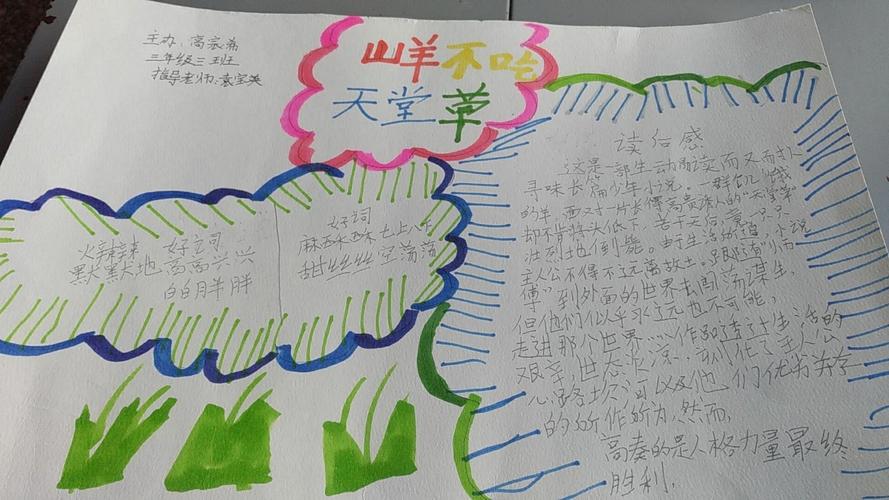 主办：高宸希
三年级三班
指导老师：袁宝英
山羊不吃
天堂草
好词
火辣辣
默默地 高高兴兴
白白胖胖
好词
麻酥酥 七上八下
甜丝丝 空荡荡
读后感
这是一部生动易读而又耐人
寻味长篇少年小说。一群饥饿
的羊，面对一片长得高贵诱人的"天堂草"
却不肯将头低下，若干天后，第一只只
壮烈地倒毙。由于生活所迫，小说
主人公不得不远离故土，跟随着小师
傅"到外面的世界去闯荡谋生，
但他们似乎永远也不可能，
走进那个世界……作品写透了生活的
艰辛世态炎凉，刻化了主人公
心路坎坷以及他们优劣并存
的所作所为，然而，
高奏的是人格力量最终
胜利，